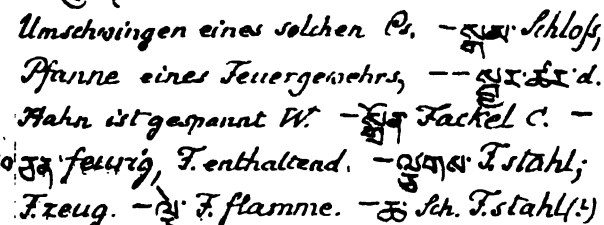 Umschwingen eines solchen Cs. – Schloß,
Pfanne eines Feuergewehrs, – – d.
Hahn ist gespannt W. –སྒྲོན Fackel C. –
ཅན་ feurig, F. enthaltend. –ལྕགས་ F.stahl;
F.zeug. –ལྕེ་ F.flamme. –ཆ་ Sch. F.stahl(?)